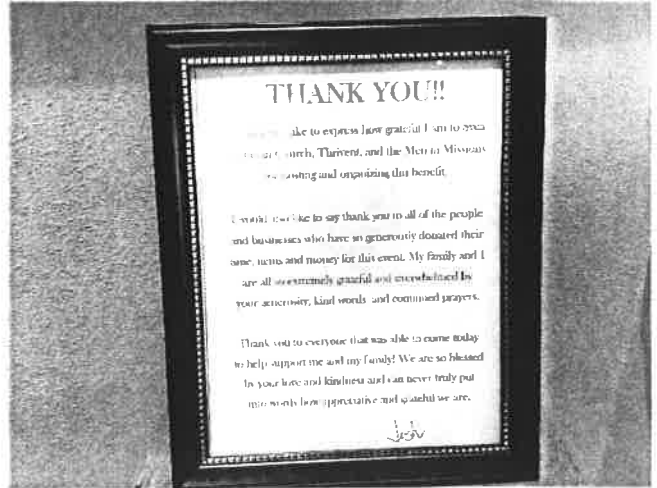 THANK YOU!!
like to express how grateful I am to
Church, Thrivent, and the Men in Missions
hosting and organizing this benefit.
I would also like to say thank you to all of the people
and businesses who have so generously donated their
time, items and money for this event. My family and I
are all so extremely grateful and overwhelmed by
your generosity, kind words and continued prayers.
Thank you to everyone that was able to come today
to help support me and my family! We are so blessed
by your love and kindness and can never truly put
into words how appreciative and grateful we are.